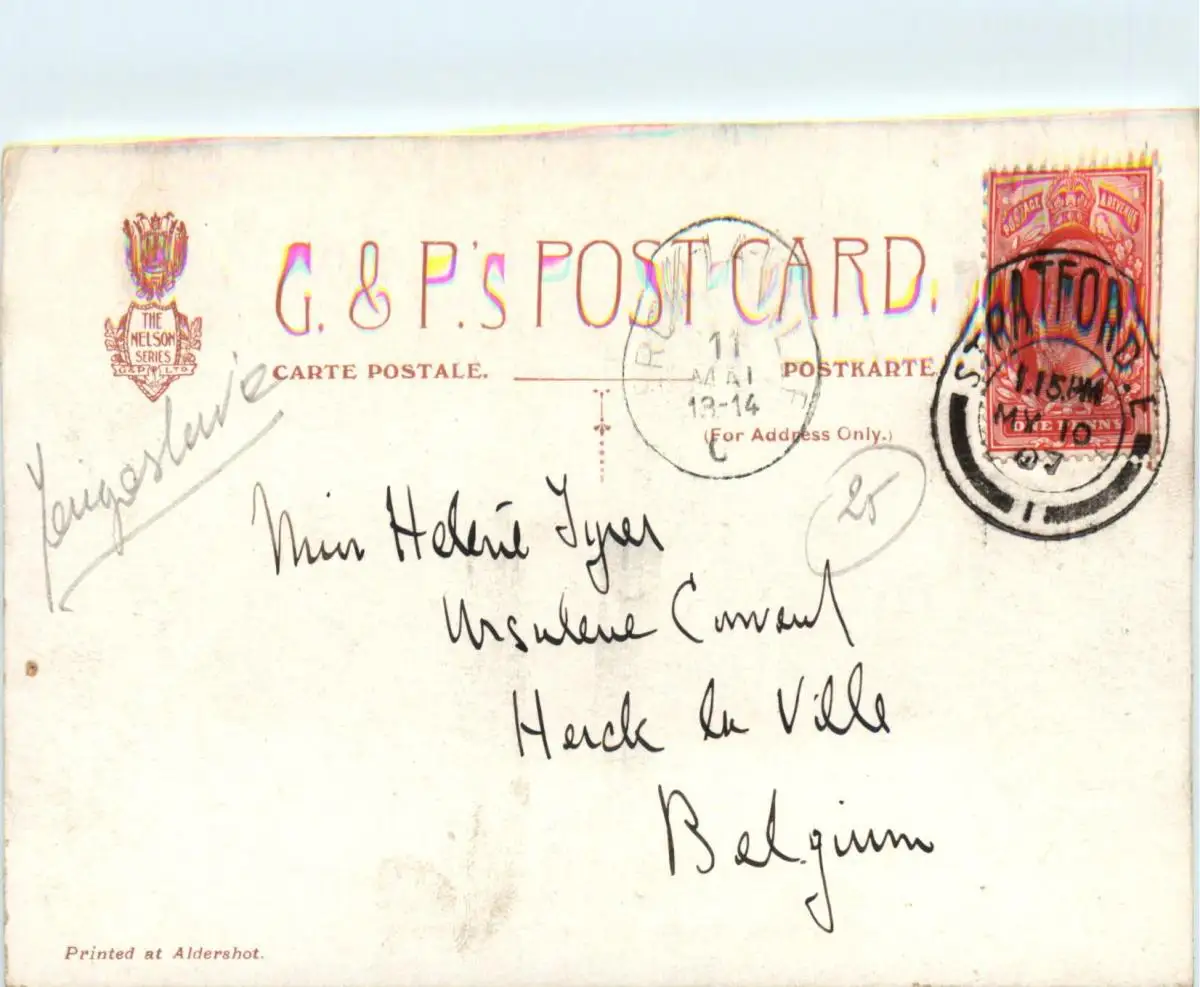 THE
NELSON
SERIES
G&P LTD
G. & P.'s POST CARD.
CARTE POSTALE.
POSTKARTE.
(For Address Only.)
POSTAGE & REVENUE
ONE PENNY
STRATFORD. E
1.15 PM
MY 10
07
1
11
MAI
13-14
25
Miss Helene Tyrer
Ursulene Convent
Herck la Ville
Belgium
Printed at Aldershot.